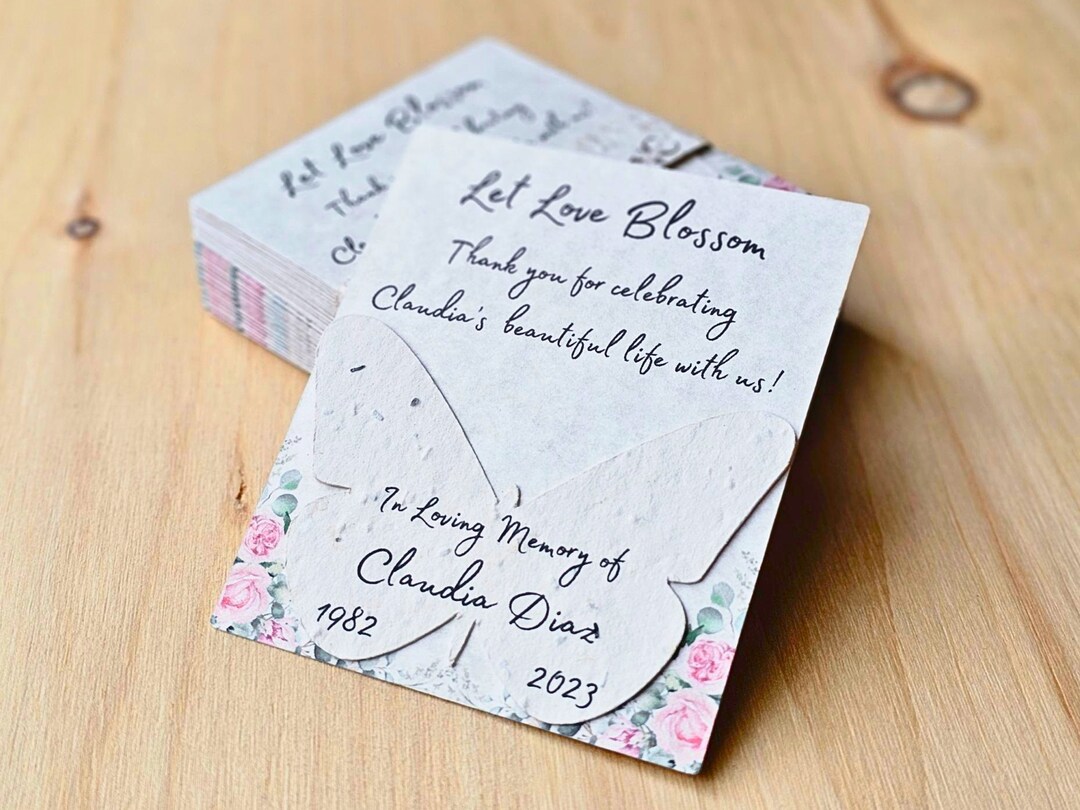 Let Love Blossom
Thank you for celebrating
Claudia's beautiful life with us!
In Loving Memory of
Claudia Diaz
1982
2023
Let Love Blossom
Thank
Cla